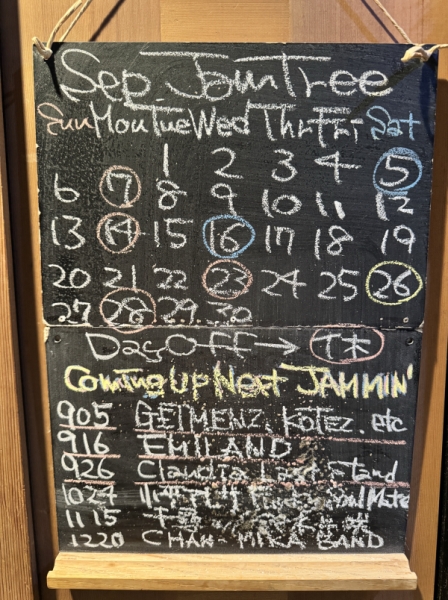 Sep JamTree
Sun Mon Tue Wed Thr Fri Sat
1 2 3 4 5
6 7 8 9 10 11 12
13 14 15 16 17 18 19
20 21 22 23 24 25 26
27 28 29 30
Day Off → 休
Coming Up Next JAMMIN'
905 GEIMENZ, KOTEZ. etc
916 EMILAND
926 Claudia Last Stand
1024
1115
1220 CHAN-MIKA BAND